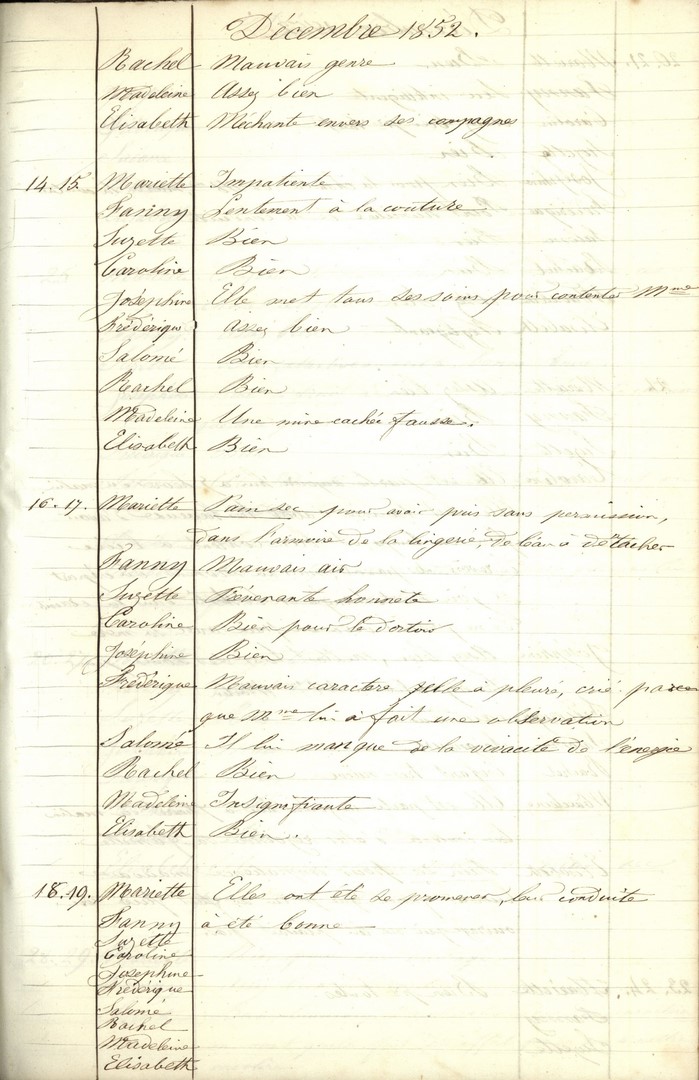 Décembre 1852.
Rachel Mauvais genre
Madeleine Assez bien
Elisabeth Méchante envers ses compagnes
14.15 Mariette Impatiente
Fanny Lentement à la couture
Suzette Bien
Caroline Bien
Joséphine Elle met tous ses soins pour contenter Mme
Frédérique Assez bien
Salomé Bien
Rachel Bien
Madeleine Une mine cachée fausse.
Elisabeth Bien
16.17. Mariette Pain sec pour avoir pris sans permission,
dans l'armoire de la lingerie, de l'eau à détacher
Fanny Mauvais air
Suzette Prévenante honnête
Caroline Bien pour le dortoir
Joséphine Bien
Frédérique Mauvais caractère elle à pleuré, crié parce
que Mme lui à fait une observation
Salomé Il lui manque de la vivacité de l'énergie
Rachel Bien
Madeleine Insignifiante
Elisabeth Bien.
18.19. Mariette Elles ont été se promener, leur conduite
Fanny à été bonne
Suzette
Caroline
Josephine
Frédérique
Salomé
Rachel
Madeleine
Elisabeth